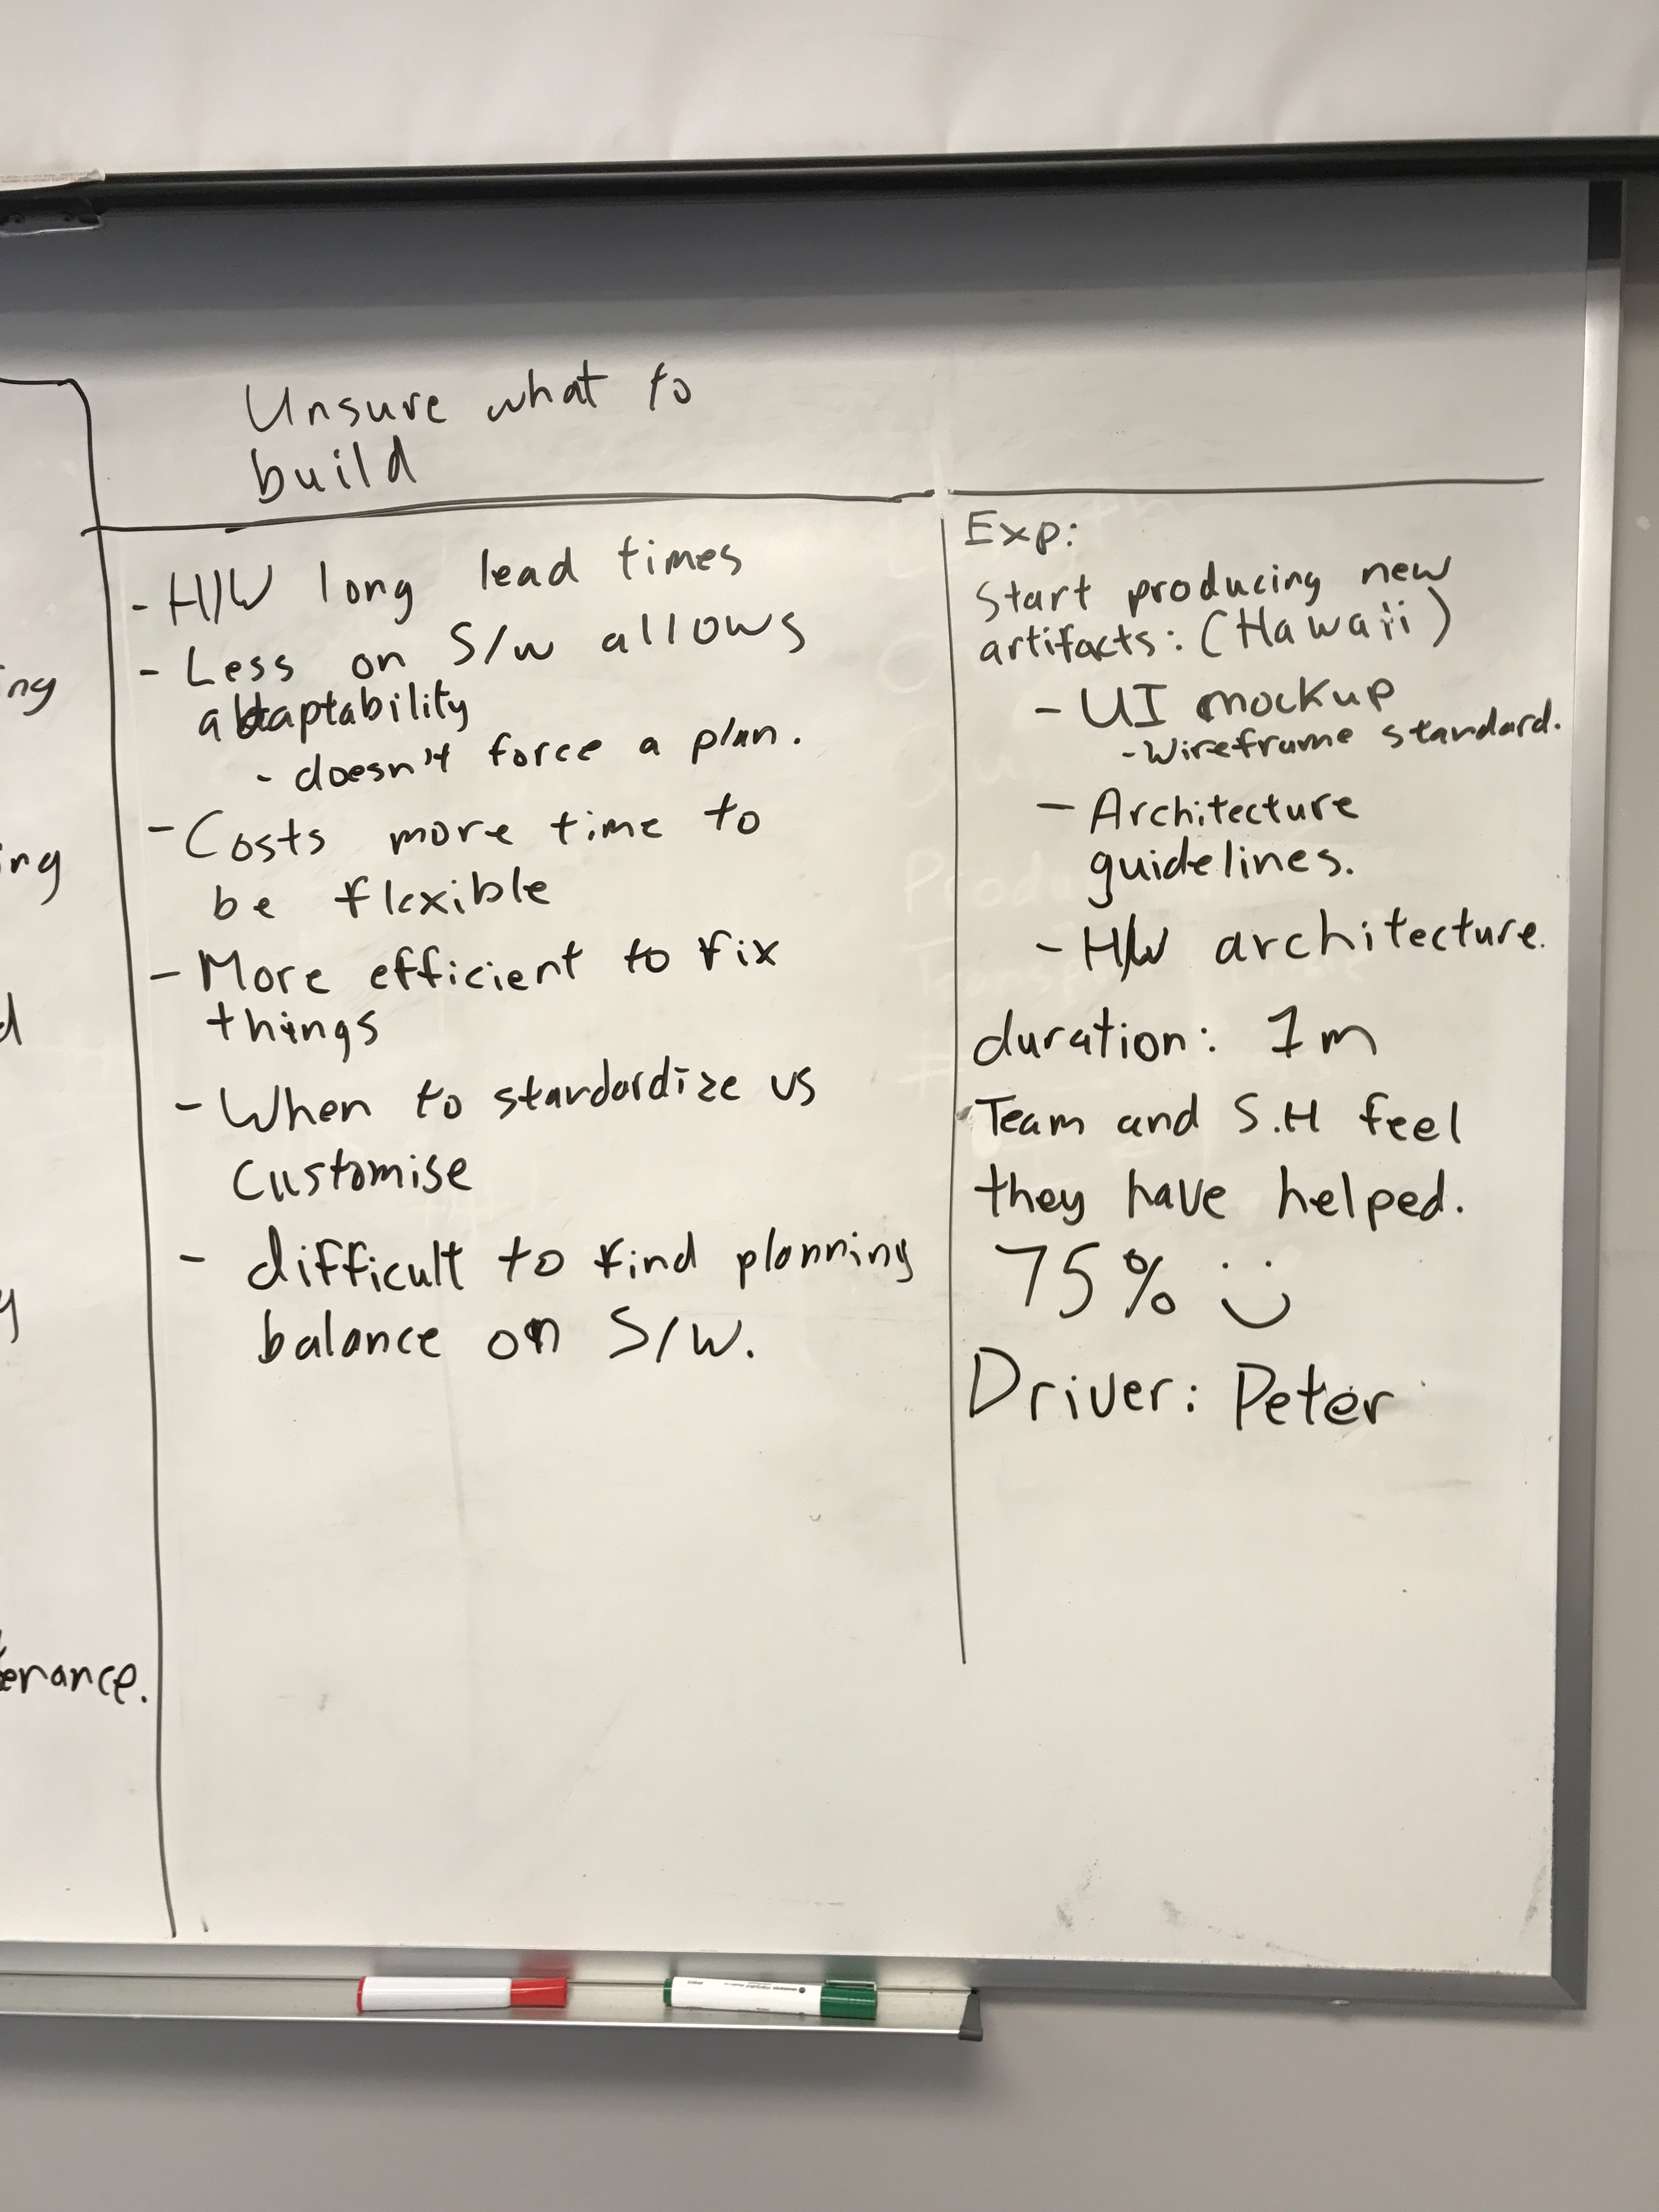 Unsure what to
build
- H/W long lead times
- Less on S/W allows
adaptability
- doesn't force a plan.
- Costs more time to
be flexible
- More efficient to fix
things
- When to standardize vs
customise
- difficult to find planning
balance on S/W.
Exp:
Start producing new
artifacts: (Hawaii)
- UI mockup
- Wireframe standard.
- Architecture
guidelines.
- H/W architecture.
duration: 1m
Team and S.H feel
they have helped.
75% :)
Driver: Peter
ng
ing
d
y
enance.